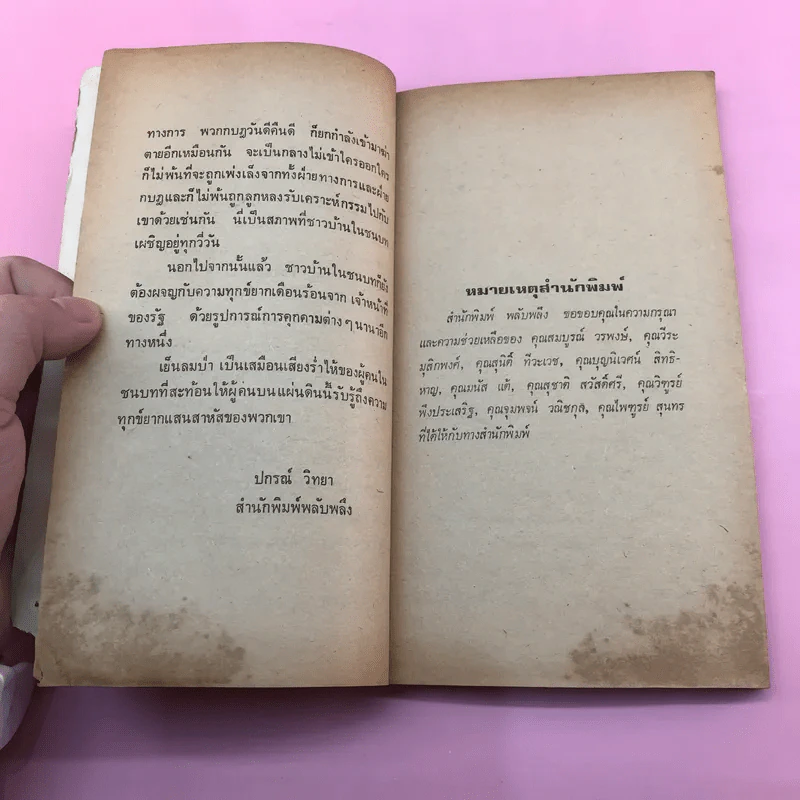 ทางการ พวกกบฎวันดีคืนดี ก็ยกกำลังเข้ามาฆ่า
ตายอีกเหมือนกัน จะเป็นกลางไม่เข้าใครออกใคร
ก็ไม่พ้นที่จะถูกเพ่งเล็งจากทั้งฝ่ายทางการและฝ่าย
กบฎและก็ไม่พ้นถูกลูกหลงรับเคราะห์กรรมไปกับ
เขาด้วยเช่นกัน นี่เป็นสภาพที่ชาวบ้านในชนบท
เผชิญอยู่ทุกวี่วัน
นอกไปจากนั้นแล้ว ชาวบ้านในชนบทก็ยัง
ต้องผจญกับความทุกข์ยากเดือนร้อนจาก เจ้าหน้าที่
ของรัฐ ด้วยรูปการณ์การคุกคามต่างๆนานาอีก
ทางหนึ่ง
เย็นลมป่า เป็นเสมือนเสียงร่ำไห้ของผู้คนใน
ชนบทที่สะท้อนให้ผู้คนบนแผ่นดินนี้รับรู้ถึงความ
ทุกข์ยากแสนสาหัสของพวกเขา
ปกรณ์ วิทยา
สำนักพิมพ์พลับพลึง
หมายเหตุสำนักพิมพ์
สำนักพิมพ์ พลับพลึง ขอขอบคุณในความกรุณา
และความช่วยเหลือของ คุณสมบูรณ์ วรพงษ์, คุณวีระ
มุสิกพงศ์, คุณสุนิติ์ ทีวะเวช, คุณบุญนิเวศน์ สิทธิ-
หาญ, คุณมนัส แต้, คุณสุชาติ สวัสดิ์ศรี, คุณวิฑูรย์
พึงประเสริฐ, คุณจุมพจน์ วณิชกุล, คุณไพฑูรย์ สุนทร
ที่ได้ให้กับทางสำนักพิมพ์